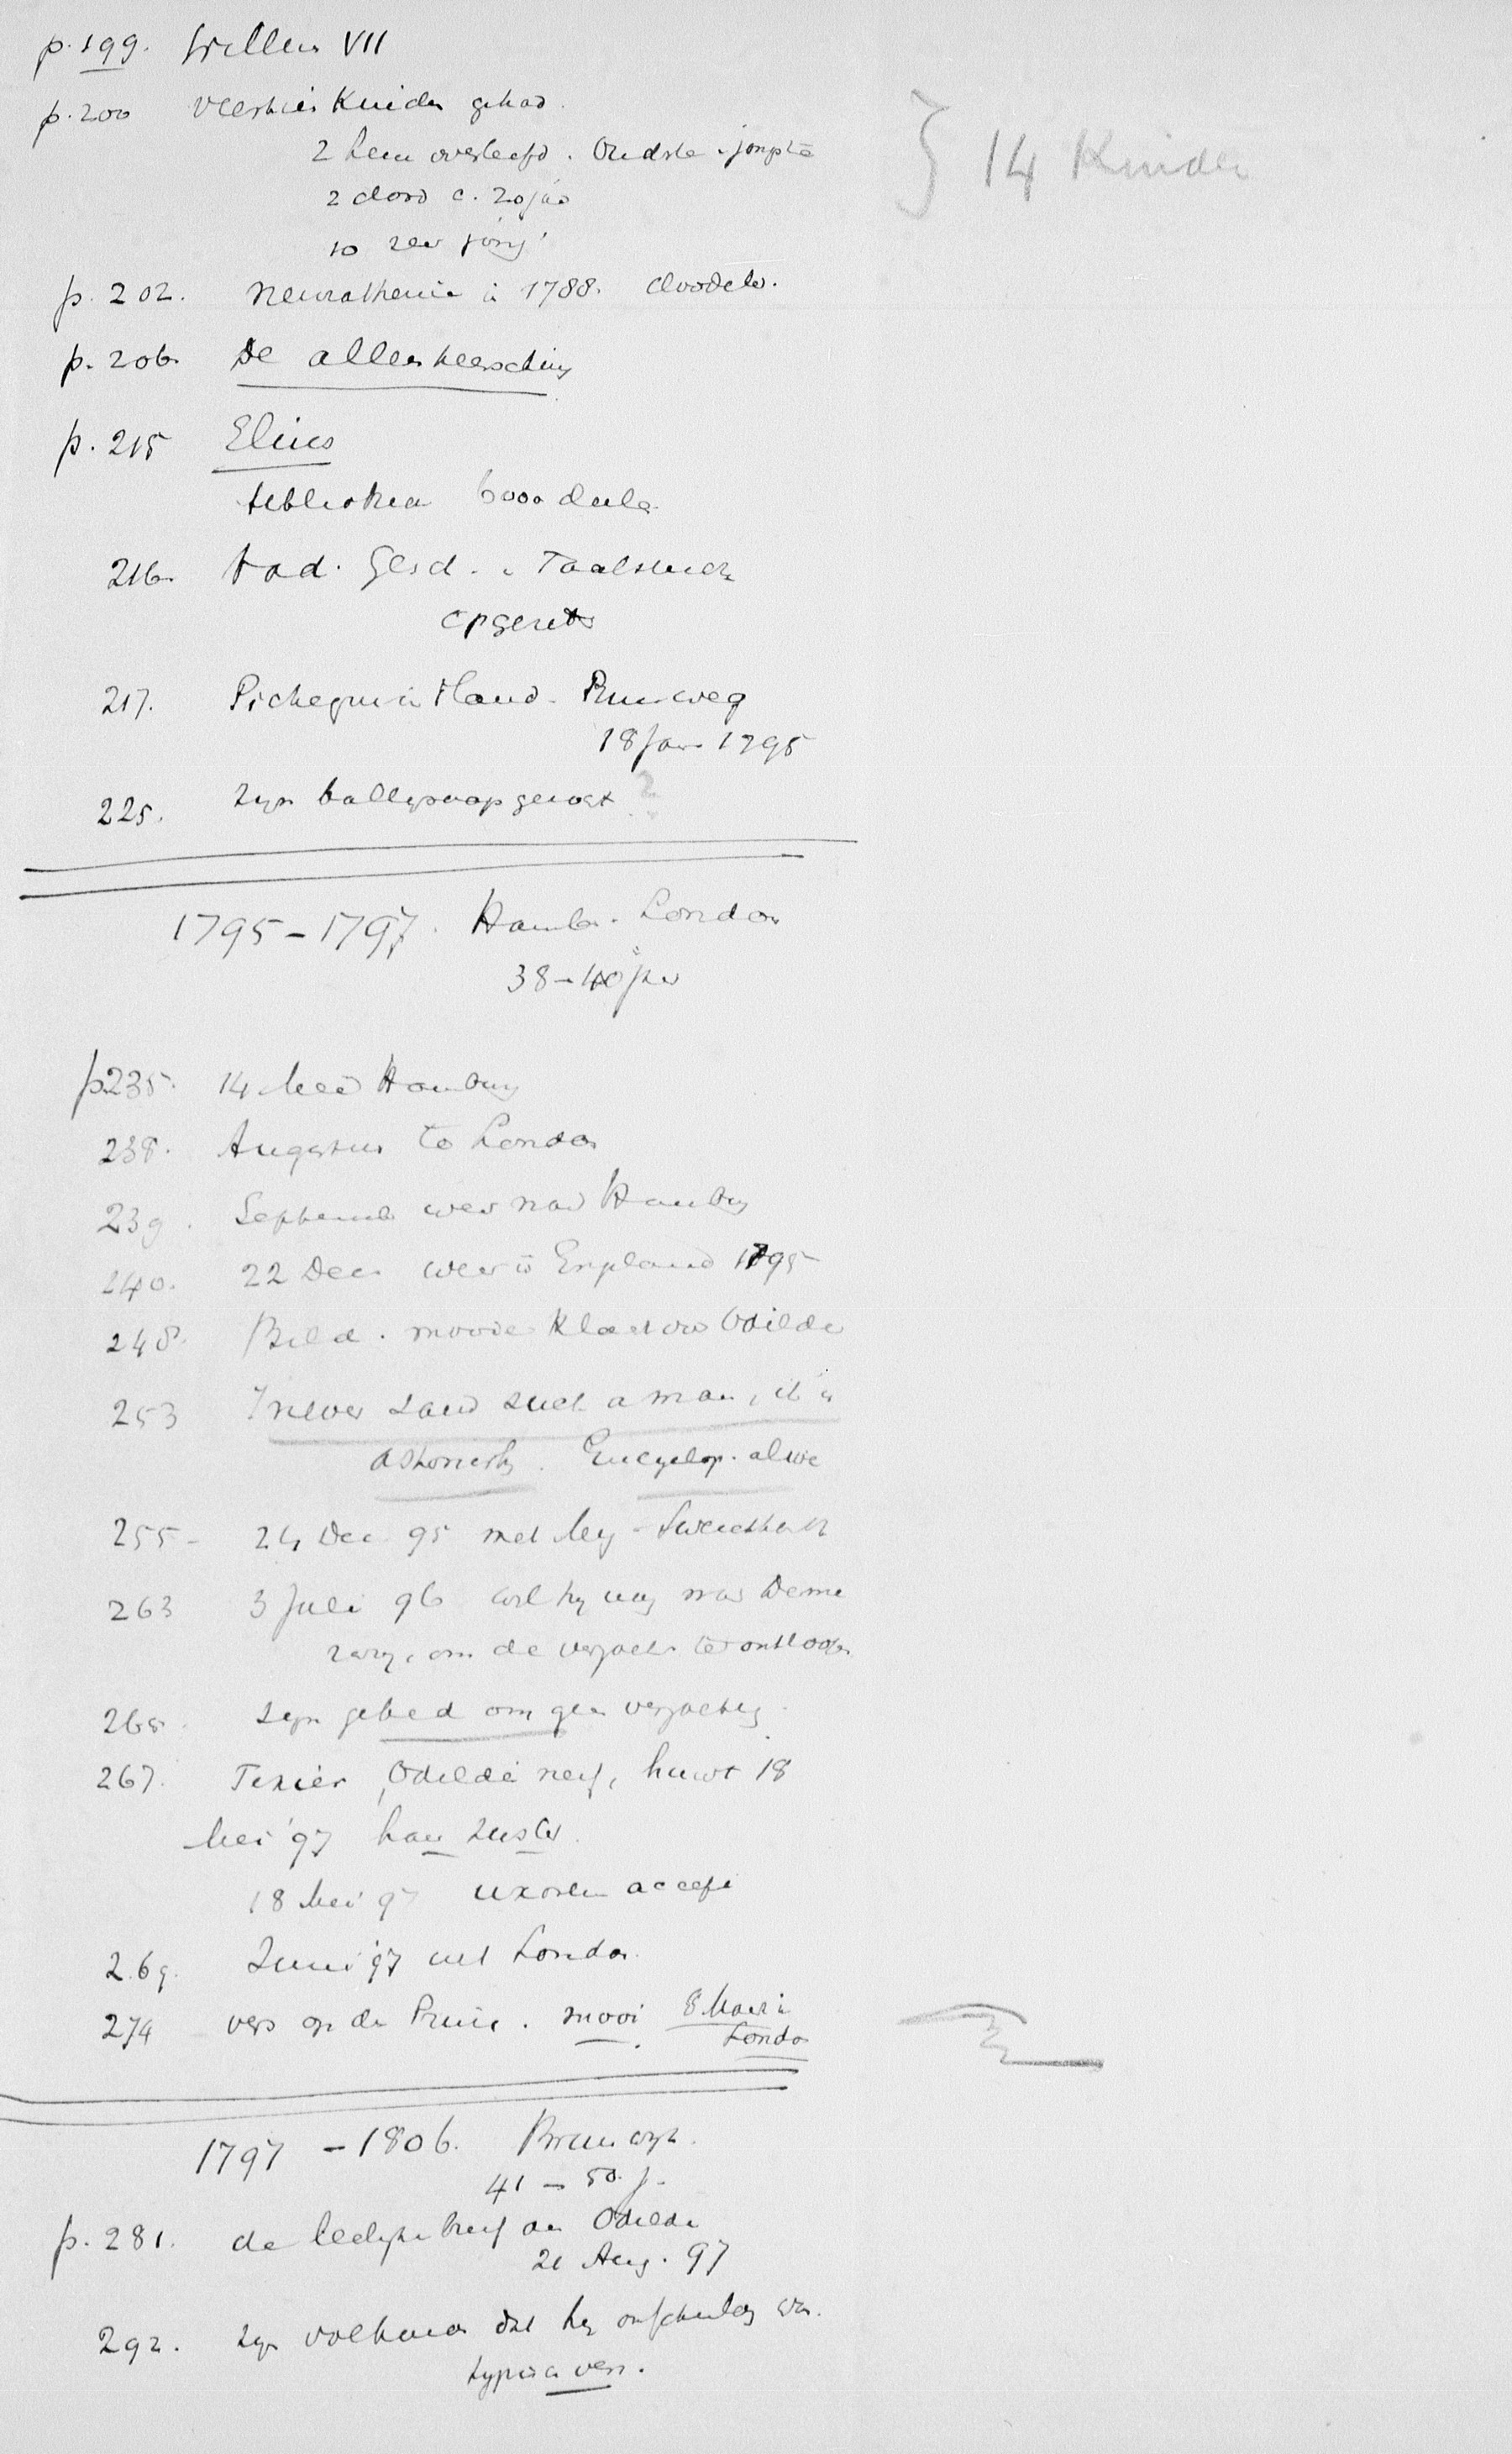 p. 199. Willem VII
p. 200 veertien Kinder gehad.
2 hem overleefd. Oudste & jongste
2 dood c. 20 jaar
10 zeer jong
} 14 Kinder
p. 202. Neurasthenie in 1788.
p. 206. De alleenheersching
p. 215 Elius
bibliotheek 6000 deele
216. Vad. Gesch. & Taalkunde
217. Pichegru in Holland. Prins weg
18 Jan 1795
225. zijn ballingschap gewest ?
1795 - 1797. Hamb. London
38 - 40 jaar
p 235. 14 Mei Hamburg
238. Augustus to London
239. September weer naar Hamburg
240. 22 Dec. weer in Engeland 1795
248. Bild. mooie klacht voor Odilde
253 I never saw such a man, it is
astonishing. Encyclop. alive
255 - 24 Dec 95 met my Sweetheart
263 3 Juli 96 wil hij weg naar Dene
marken, om de verzoek te ontloopen
265. zijn gebed om geen verzoeking
267. Texier, Odilde neef, huwt 18
Mei '97 haar zuster.
18 Mei 97 uxorem accepi
269. Juni '97 uit London.
274 vers op de Prins. mooi 8 Maart in
London
1797 - 1806. Brunswijk.
41 - 50 j.
p. 281. de leelijke brief aan Odilde
21 Aug. 97
292. zijn volhouden dat hij onschuldig was.
typisch vers.